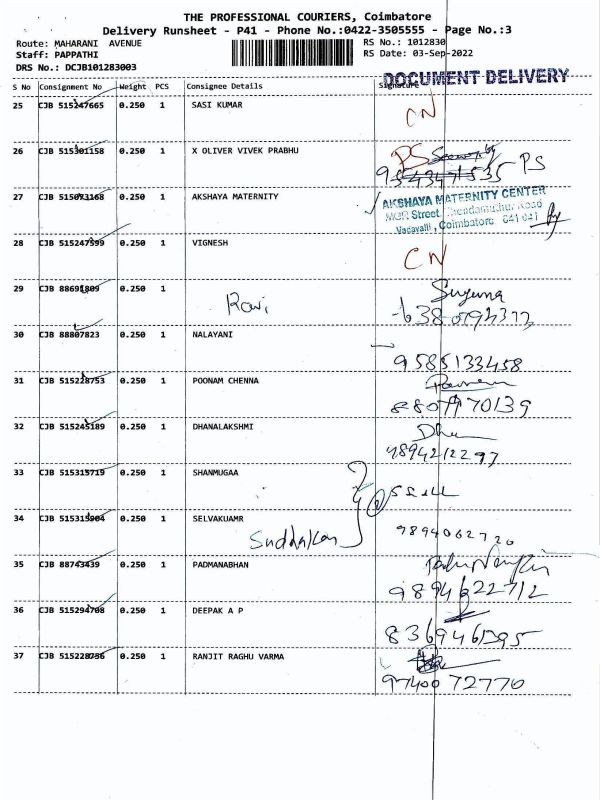 THE PROFESSIONAL COURIERS, Coimbatore
Delivery Runsheet - P41 - Phone No.:0422-3505555 - Page No.:3
Route: MAHARANI AVENUE RS No.: 1012830
Staff: PAPPATHI RS Date: 03-Sep-2022
DRS No.: DCJB101283003
DOCUMENT DELIVERY
S No Consignment No Weight PCS Consignee Details Signature
25 CJB 515247665 0.250 1 SASI KUMAR CN
26 CJB 515301158 0.250 1 X OLIVER VIVEK PRABHU PS PS
27 CJB 515073168 0.250 1 AKSHAYA MATERNITY
AKSHAYA MATERNITY CENTER
MGR Street, Road
Vadavalli, Coimbatore 641 041
28 CJB 515247599 0.250 1 VIGNESH CN
29 CJB 88691809 0.250 1 Ravi Suguna
30 CJB 88807823 0.250 1 NALAYANI
9585133458
31 CJB 515228753 0.250 1 POONAM CHENNA
8807770139
32 CJB 515245189 0.250 1 DHANALAKSHMI
9894212297
33 CJB 515315719 0.250 1 SHANMUGAA
34 CJB 515315904 0.250 1 SELVAKUAMR
Suddhakar 9894062720
35 CJB 88743439 0.250 1 PADMANABHAN
9894622712
36 CJB 515294708 0.250 1 DEEPAK A P
8369461395
37 CJB 515228736 0.250 1 RANJIT RAGHU VARMA
9740072770